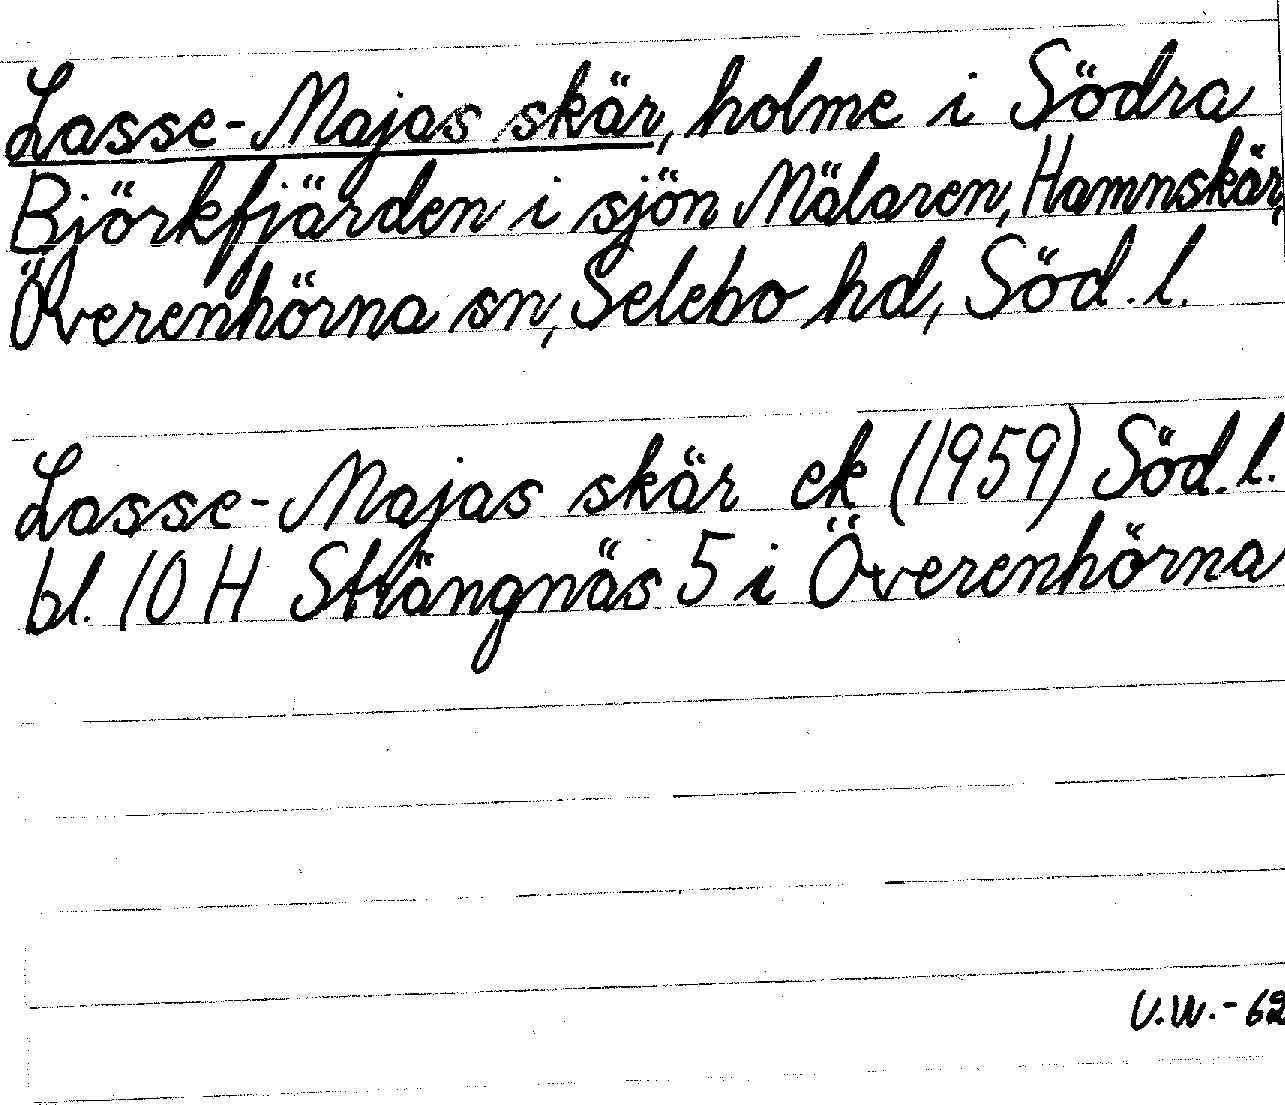 Lasse-Majas skär, holme i Södra
Björkfjärden i sjön Mälaren, Hamnskär,
Överenhörna sn, Selebo hd, Söd. l.
Lasse-Majas skär ek (1959) Söd. l.
bl. 10 H Strängnäs 5 i Överenhörna
V.W.-62